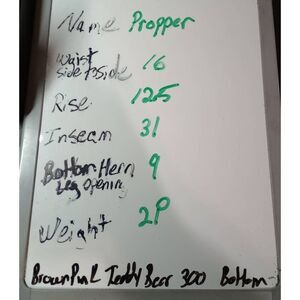 Name Propper
Waist
side to side 16
Rise 12.5
Inseam 31
Bottom Hem 9
Leg Opening
Weight 2P
Brown Pink Teddy Bear 300 Bottom